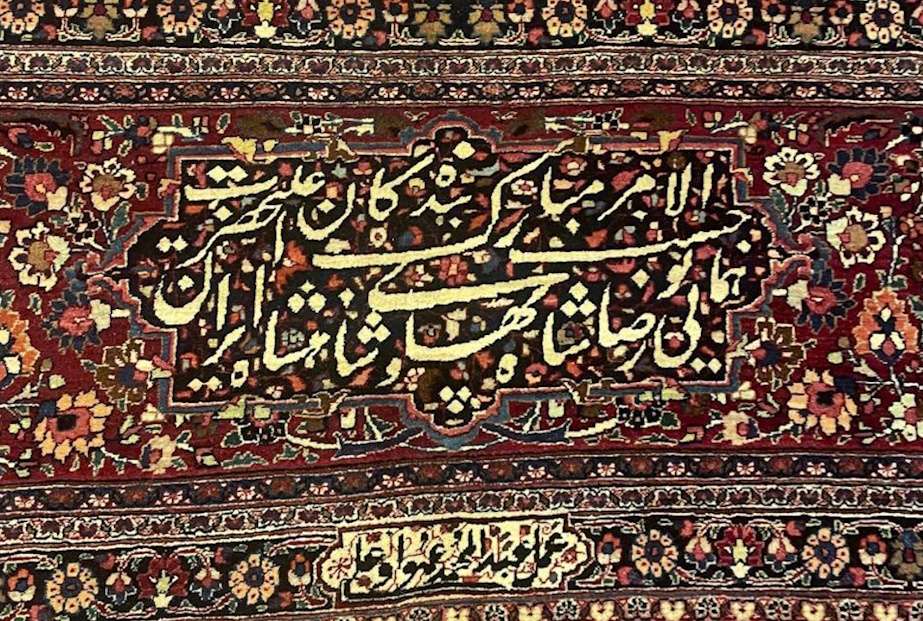 حسب الامر مبارک بندگان اعلیحضرت
همایونی رضا شاه پهلوی شاهنشاه ایران